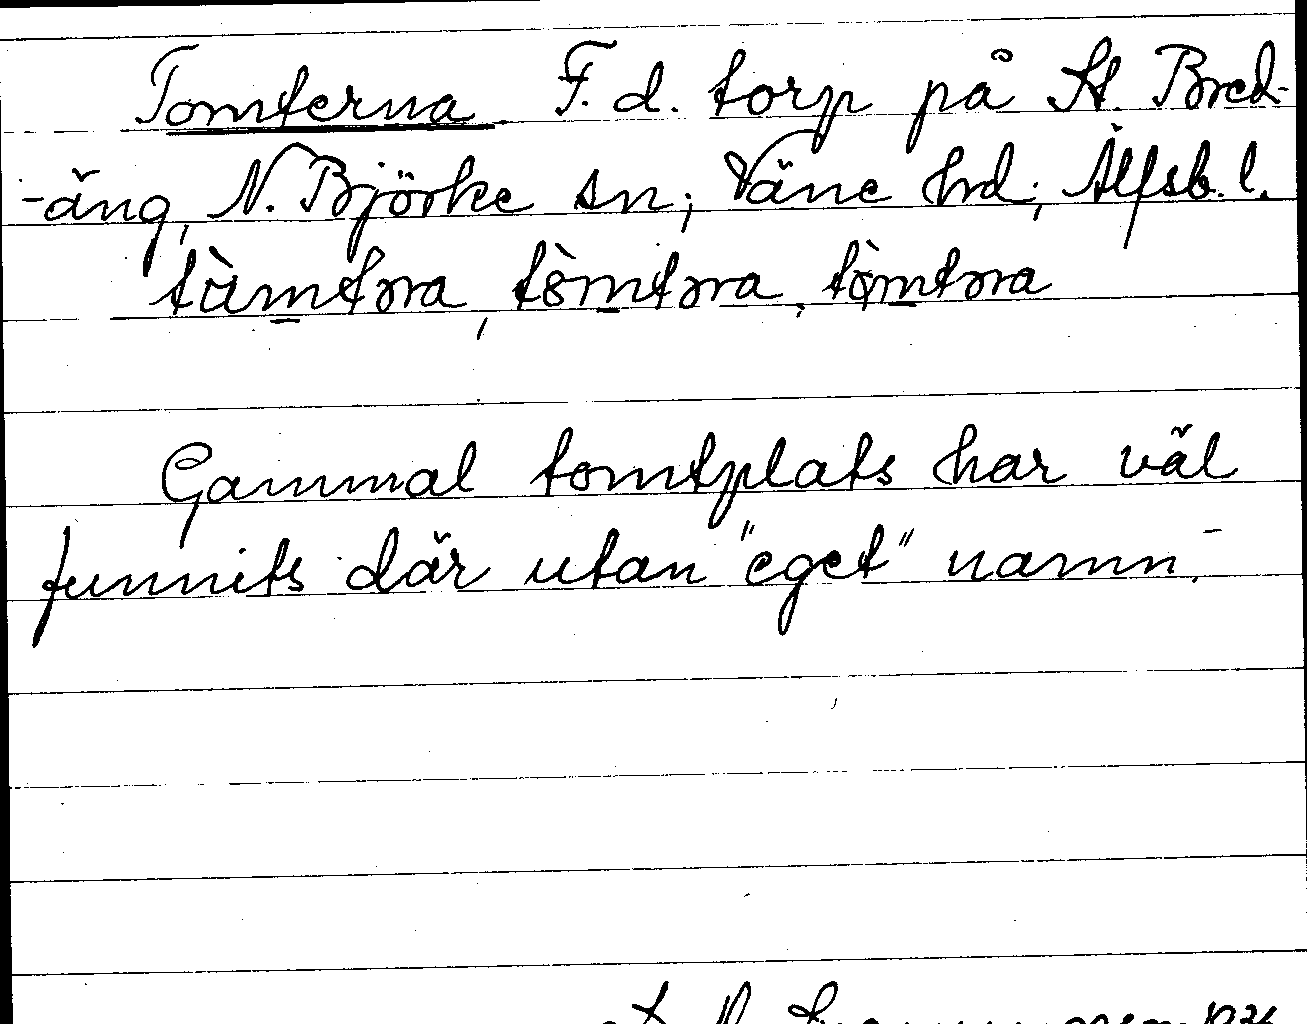 Tomterna. F. d. torp på St. Bred-
-äng, N. Björke sn; Väne hd; Älfsb. l.
tùmtəra, tòmtəra, tòmtəra
Gammal tomtplats har väl
funnits där utan "eget" namn.-